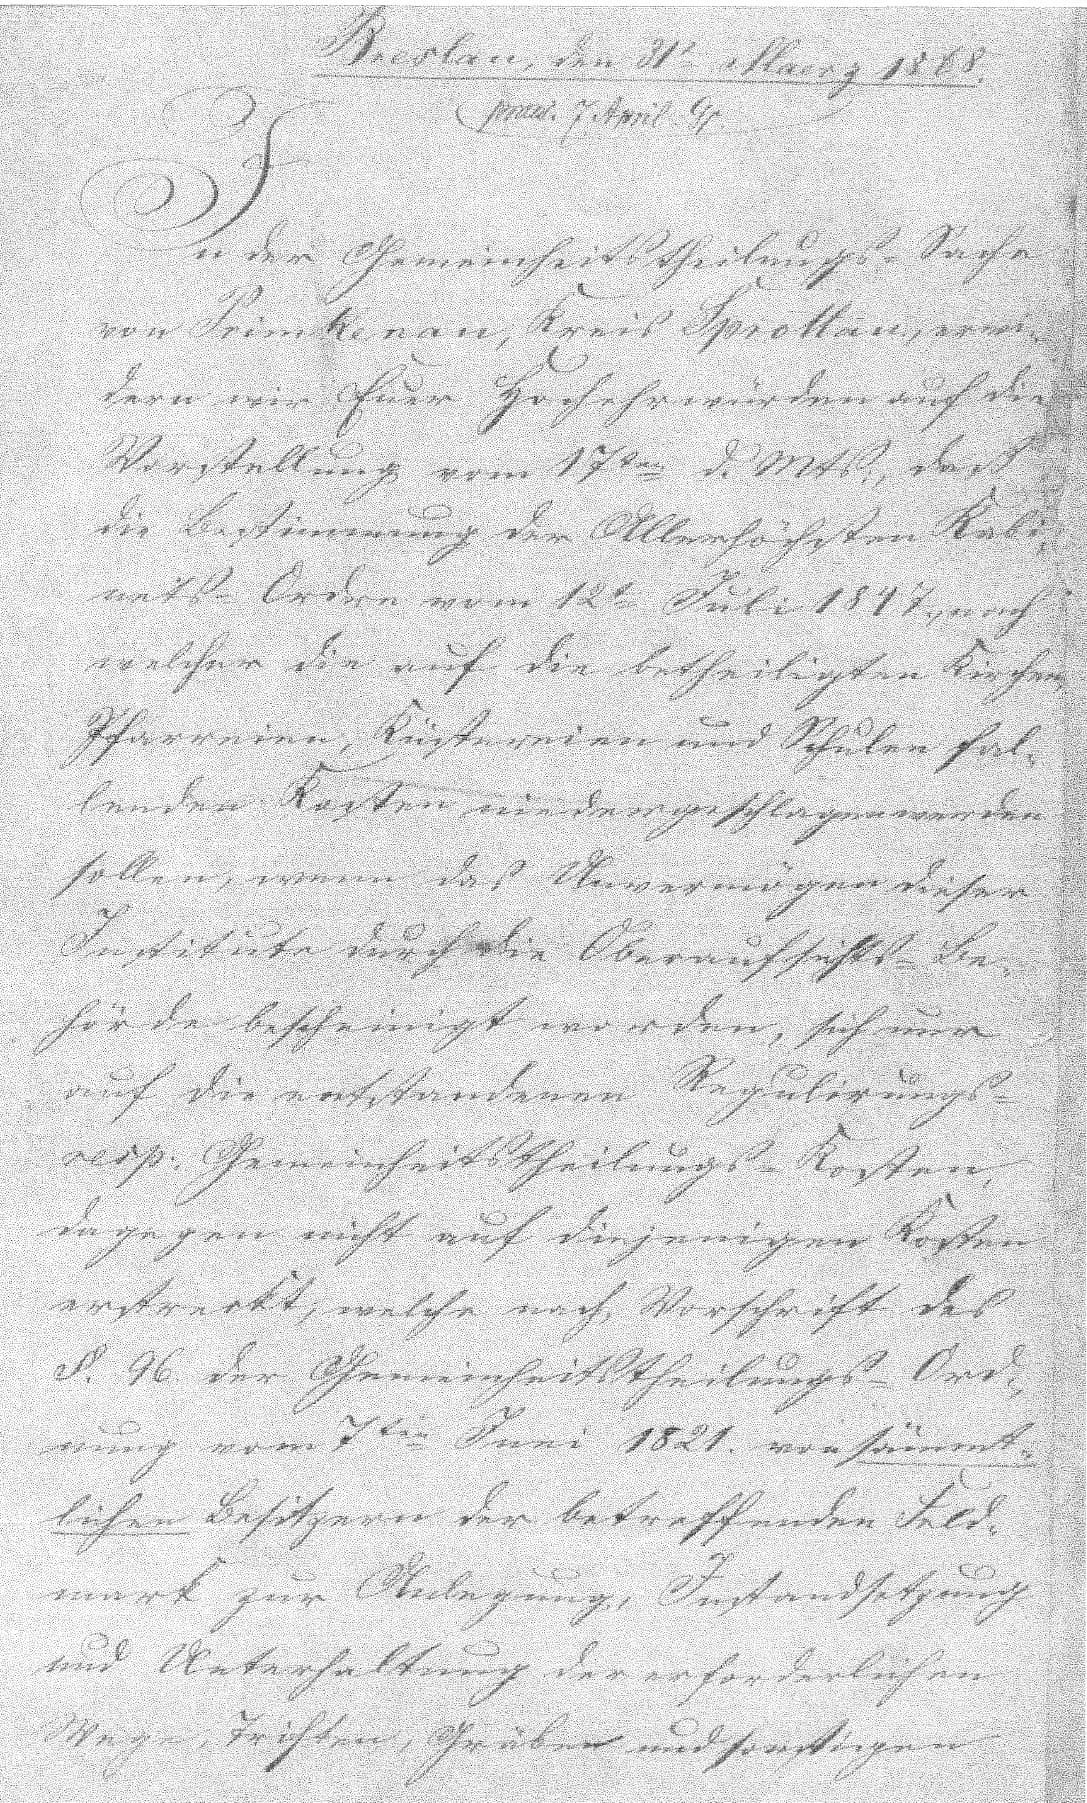 Breslau, den 31t Maerz 1868.
praes. 7. April
In der Gemeinheitstheilungs-Sache
von Primkenau, Kreis Sprottau, erwi-
dern wir Euer Hochehrwürden auf die
Vorstellung vom 17ten d. Mts., daß
die Bestimmung der Allerhöchsten Kabi-
nets-Ordre vom 12t Juli 1847, nach
welcher die auf die betheiligten Kirchen,
Pfarreien, Küstereien und Schulen fal-
lenden Kosten niedergeschlagen werden
sollen, wenn das Unvermögen dieser
Institute durch die Oberaufsichts-Be-
hörde bescheinigt worden, sich nur
auf die entstandenen Regulirungs-
resp. Gemeinheitstheilungs-Kosten,
dagegen nicht auf diejenigen Kosten
erstreckt, welche nach Vorschrift des
§. 96 der Gemeinheitstheilungs-Ord-
nung vom 7ten Juni 1821. von sämmt-
lichen Besitzern der betreffenden Feld-
mark zur Anlegung, Instandsetzung
und Unterhaltung der erforderlichen
Wege, Triften, Gräben und sonstigen